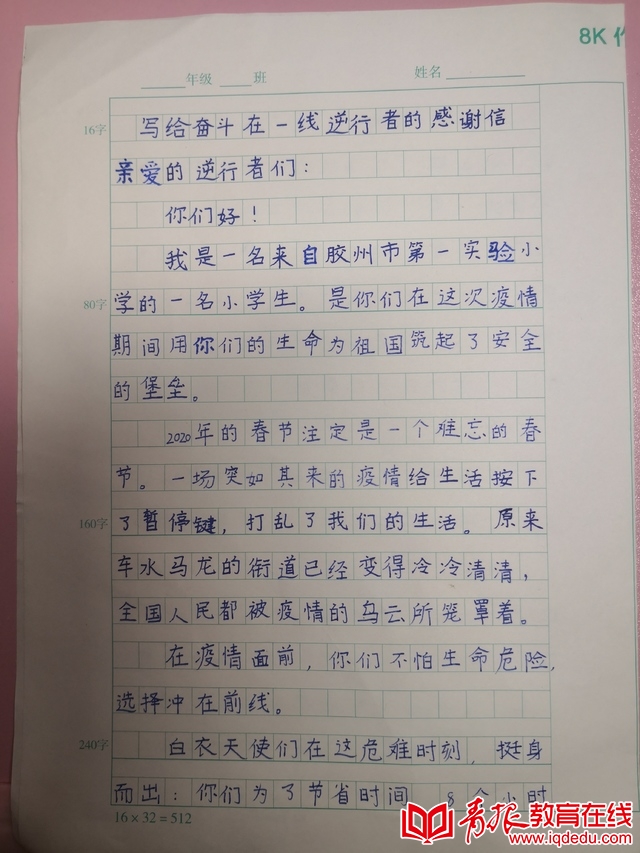 8K
年级 班 姓名
16字
写给奋斗在一线逆行者的感谢信
亲爱的逆行者们：
你们好！
我是一名来自胶州市第一实验小
80字
学的一名小学生。是你们在这次疫情
期间用你们的生命为祖国筑起了安全
的堡垒。
2020年的春节注定是一个难忘的春
节。一场突如其来的疫情给生活按下
160字
了暂停键，打乱了我们的生活。原来
车水马龙的街道已经变得冷冷清清，
全国人民都被疫情的乌云所笼罩着。
在疫情面前，你们不怕生命危险，
选择冲在前线。
240字
白衣天使们在这危难时刻，挺身
而出：你们为了节省时间 8个小时
16×32=512
青报教育在线
www.iqdedu.com